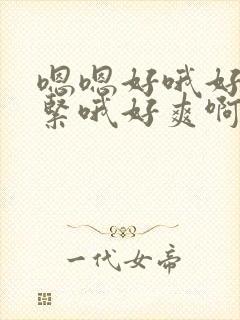 嗯嗯好哦好
紧哦好爽啊
一代女帝